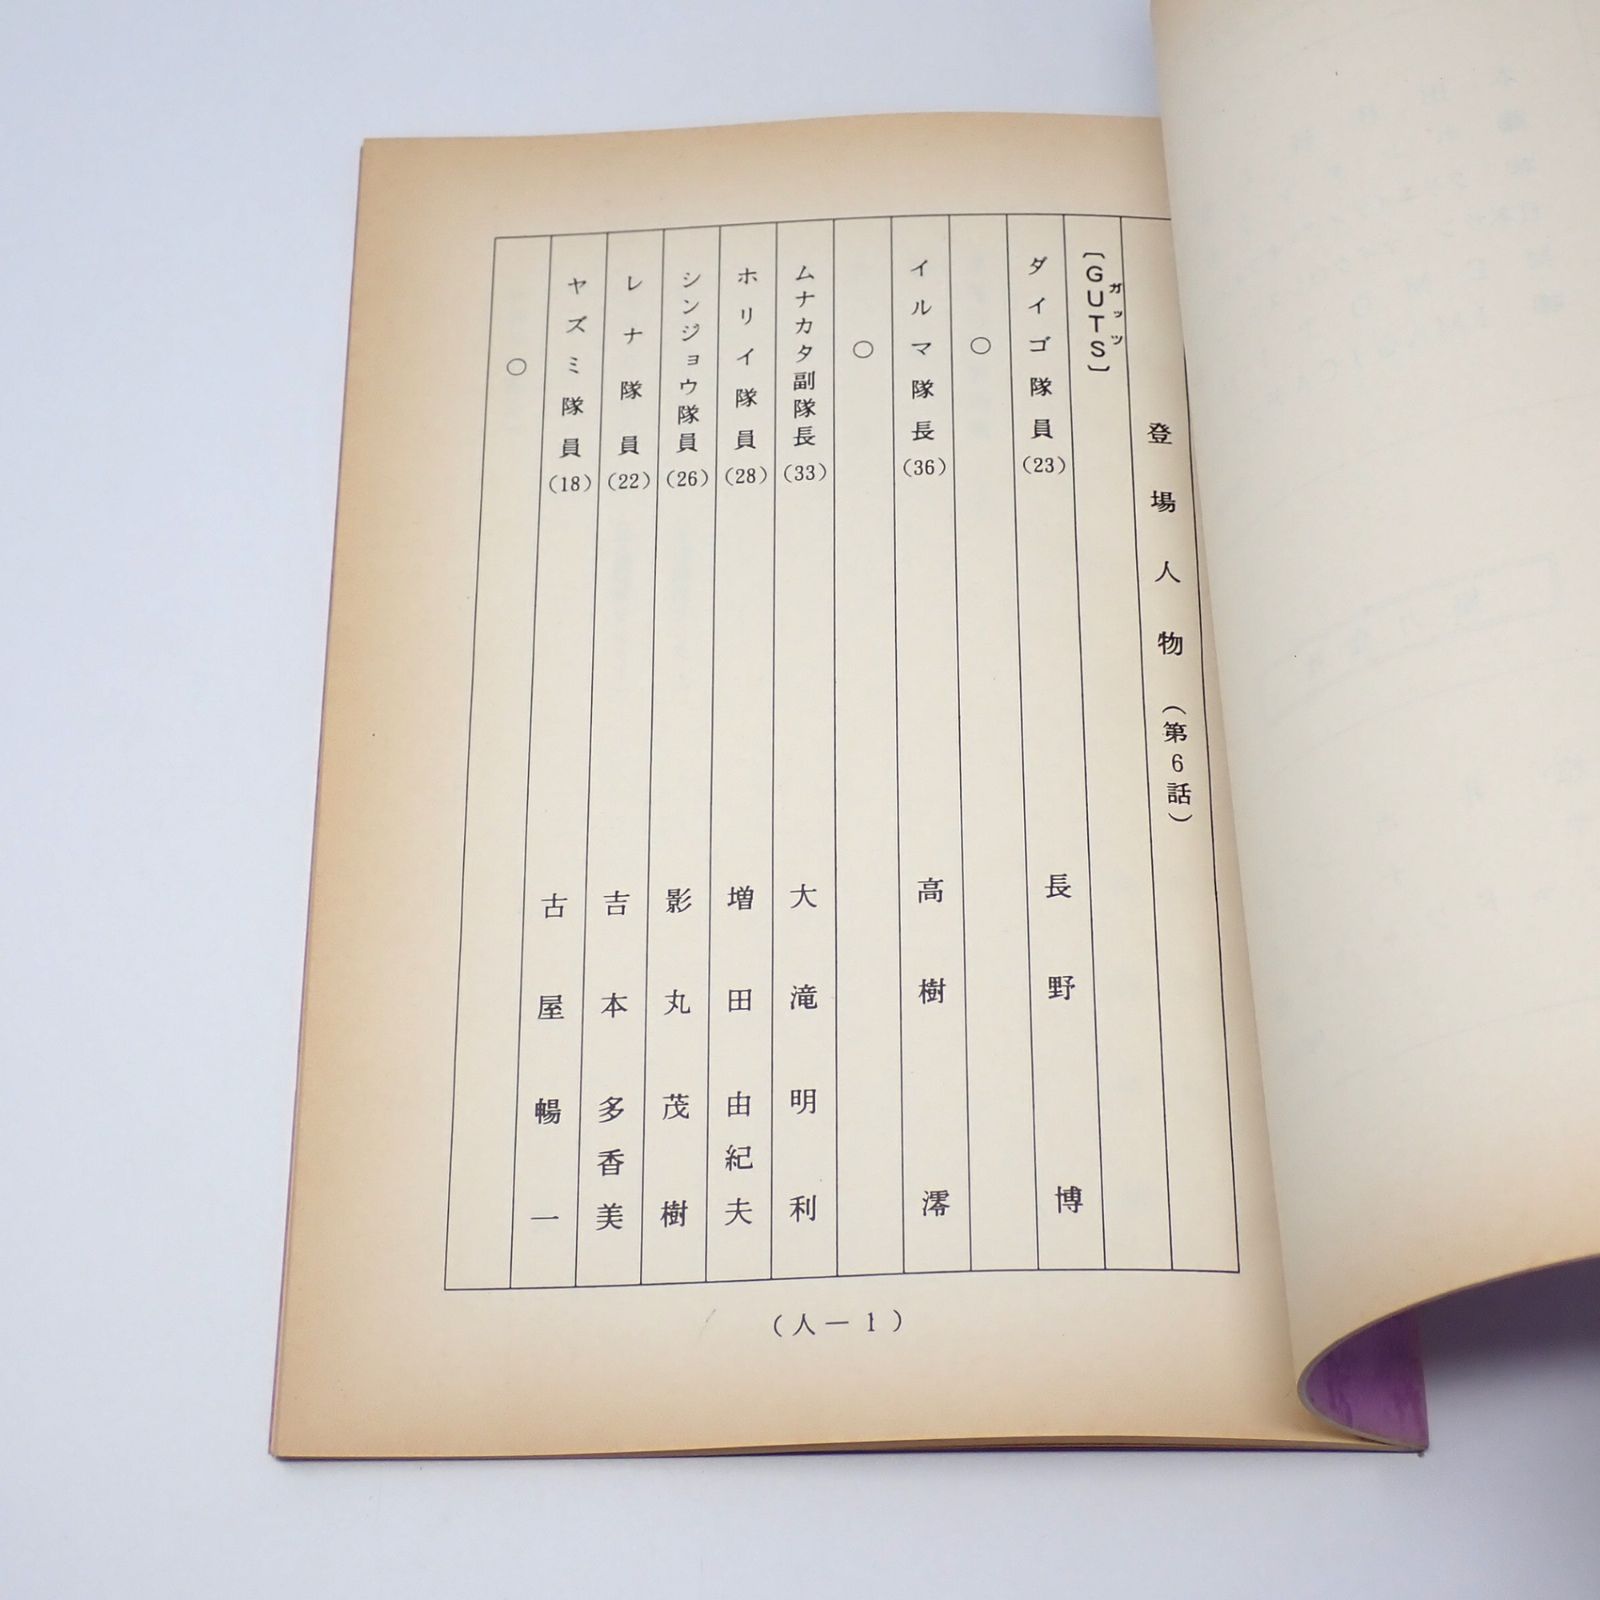 登場人物（第6話）
〔GUTS〕
ガッツ
ダイゴ隊員(23) 長野博
○
イルマ隊長(36) 高樹澪
○
ムナカタ副隊長(33) 大滝明利
ホリイ隊員(28) 増田由紀夫
シンジョウ隊員(26) 影丸茂樹
レナ隊員(22) 吉本多香美
ヤズミ隊員(18) 古屋暢一
○
(人－1)